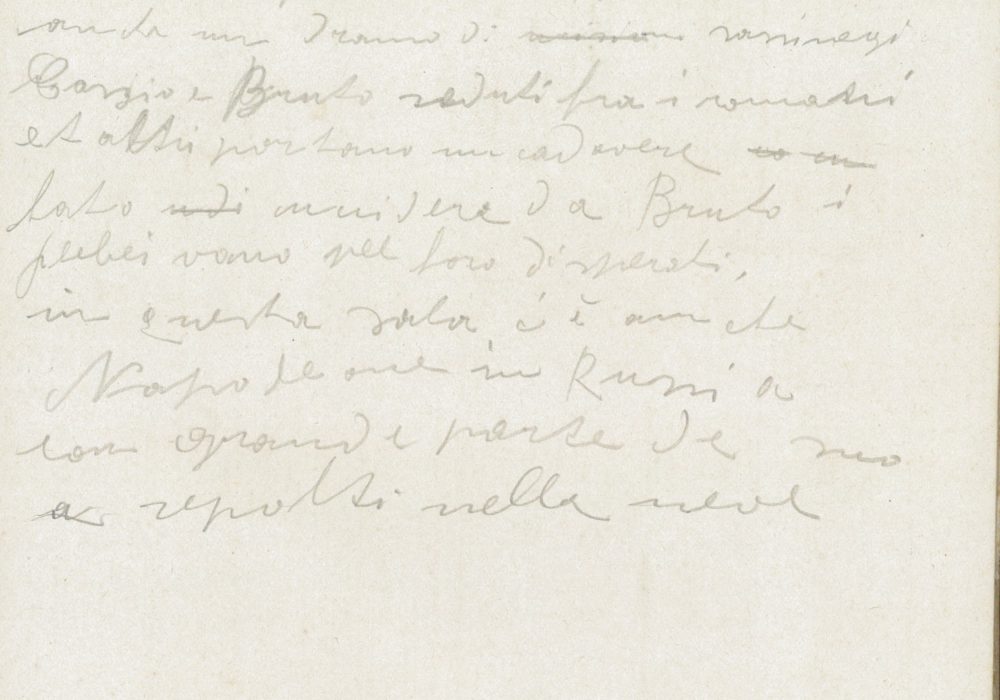 anche un dramo di sassinegi
Cassio e Bruto seduti fra i romani
et altri portano un cadavere
fato uccidere da Bruto i
plebei vano pel foro disperati,
in questa sala c'è am che
Napoleone in Russia
con grande parte de suo
a sepolti nella neve